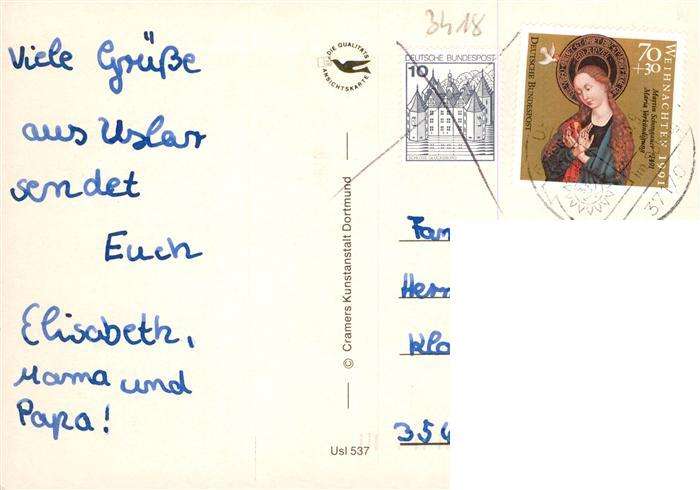 Viele Grüße
aus Uslar
sendet
Euch
Elisabeth,
Mama und
Papa!
3418
DIE QUALITÄTS
ANSICHTSKARTE
© Cramers Kunstanstalt Dortmund
Usl 537
DEUTSCHE BUNDESPOST
10
SCHLOSS GLÜCKSBURG
70
+30
WEIHNACHTEN 1991
Martin Schongauer · 1491
Maria Verkündigung
DEUTSCHE BUNDESPOST
Fam
Herr
Kla
354